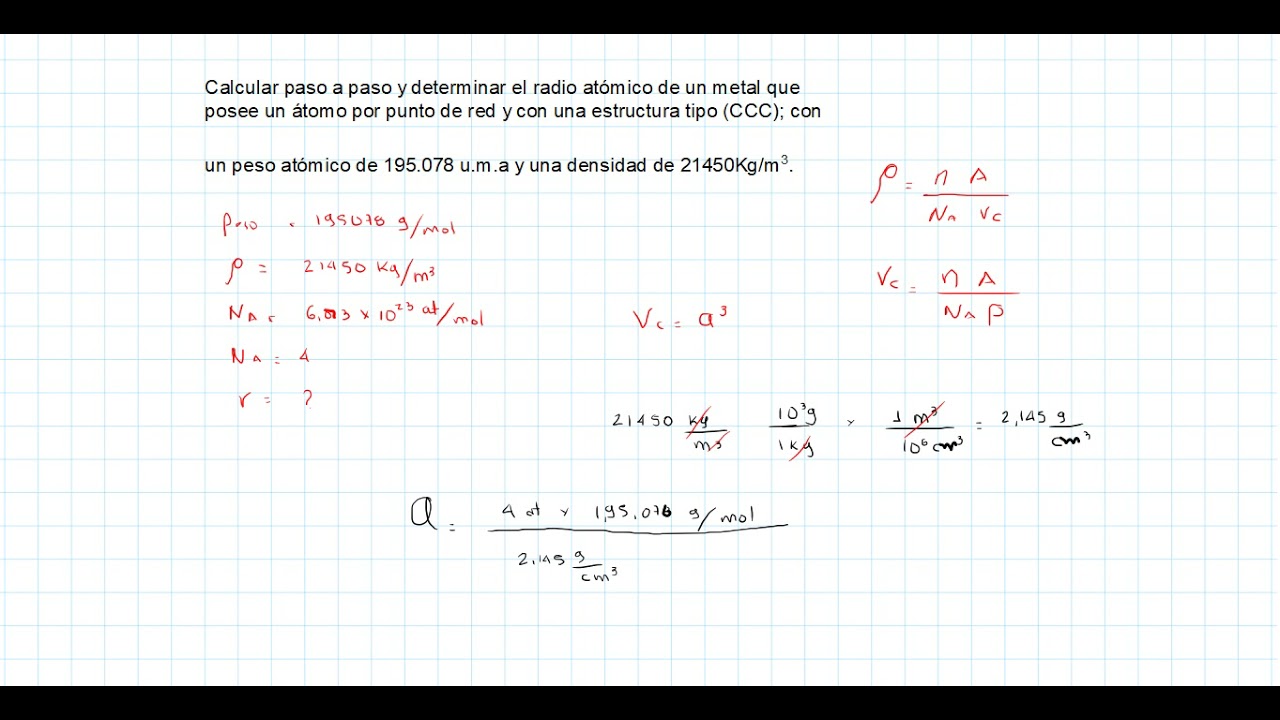 Calcular paso a paso y determinar el radio atómico de un metal que
posee un átomo por punto de red y con una estructura tipo (CCC); con
un peso atómico de 195.078 u.m.a y una densidad de 21450Kg/m³.
ρ = n A / NA Vc
Peso = 195078 g/mol
ρ = 21450 Kg/m³
Vc = n A / NA ρ
NA = × 10²³ at/mol
Vc = a³
NA = 4
r = ?
21450 kg/m³ 10³g/1kg × 1 m³/10⁶ cm³ = 2,145 g/cm³
a = 4 at × 195.078 g/mol / 2,145 g/cm³